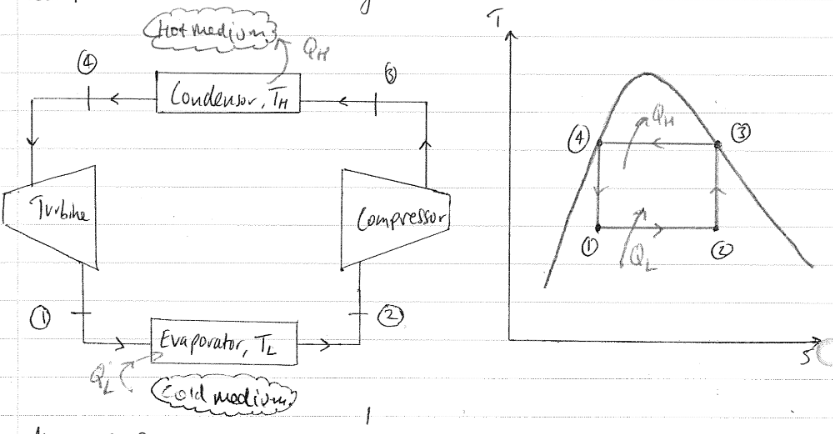 Hot medium
Q_H
④
Condensor, T_H
③
Turbine
Compressor
①
②
Evaporator, T_L
Q_L
Cold medium
T
④
Q_H
③
①
Q_L
②
S